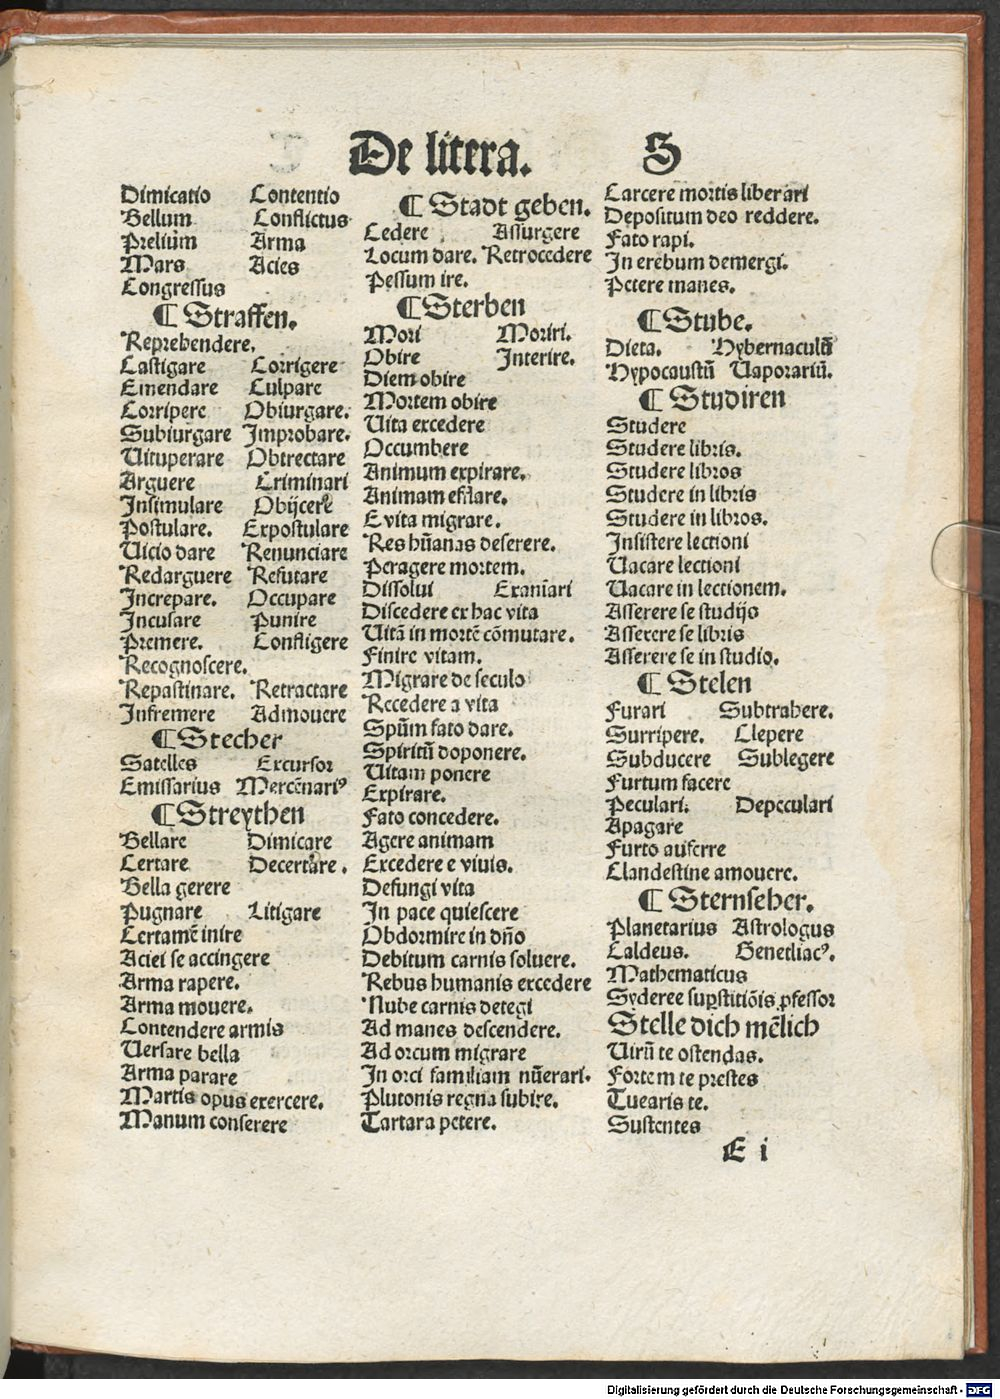 De litera. S
Dimicatio Contentio
Bellum Conflictus
Preliũm Arma
Mars Acies
Congressus
¶ Straffen.
Reprehendere.
Castigare Corrigere
Emendare Culpare
Corripere Obiurgare.
Subiurgare Improbare.
Uituperare Obtrectare
Arguere Criminari
Insimulare Obijcere
Postulare. Expostulare
Uicio dare Renunciare
Redarguere Refutare
Increpare. Occupare
Incusare Punire
Premere. Confligere
Recognoscere.
Repastinare. Retractare
Infremere Admouere
¶ Stecher
Satelles Excursor
Emissarius Mercẽnariꝰ
¶ Streythen
Bellare Dimicare
Certare Decertare.
Bella gerere
Pugnare Litigare
Certamẽ inire
Aciei se accingere
Arma rapere.
Arma mouere.
Contendere armis
Uersare bella
Arma parare
Martis opus exercere.
Manum conserere
¶ Stadt geben.
Cedere Assurgere
Locum dare. Retrocedere
Pessum ire.
¶ Sterben
Mori Moriri.
Obire Interire.
Diem obire
Mortem obire
Uita excedere
Occumbere
Animum expirare.
Animam efflare.
E vita migrare.
Res hũanas deserere.
Peragere mortem.
Dissolui Exanĩari
Discedere ex hac vita
Uitã in mortẽ cõmutare.
Finire vitam.
Migrare de seculo
Recedere a vita
Spũm fato dare.
Spiritũ doponere.
Uitam ponere
Expirare.
Fato concedere.
Agere animam
Excedere e viuis.
Defungi vita
In pace quiescere
Obdormire in dño
Debitum carnis soluere.
Rebus humanis excedere
Nube carnis detegi
Ad manes descendere.
Ad orcum migrare
In orci familiam nũerari.
Plutonis regna subire.
Tartara petere.
Carcere mortis liberari
Depositum deo reddere.
Fato rapi.
In erebum demergi.
Petere manes.
¶ Stube.
Dieta. Hybernaculũ
Hypocaustũ Uaporariũ.
¶ Studiren
Studere
Studere libris.
Studere libros
Studere in libris
Studere in libros.
Insistere lectioni
Uacare lectioni
Uacare in lectionem.
Asserere se studijs
Asserere se libris
Asserere se in studio.
¶ Stelen
Furari Subtrahere.
Surripere. Clepere
Subducere Sublegere
Furtum facere
Peculari. Depeculari
Apagare
Furto auferre
Clandestine amouere.
¶ Sternseher.
Planetarius Astrologus
Caldeus. Genetliacꝰ.
Mathematicus
Syderee suꝑstitiõis ꝓfessor
Stelle dich mẽlich
Uirũ te ostendas.
Fortem te prestes
Tuearis te.
Sustentes
E i
Digitalisierung gefördert durch die Deutsche Forschungsgemeinschaft - DFG